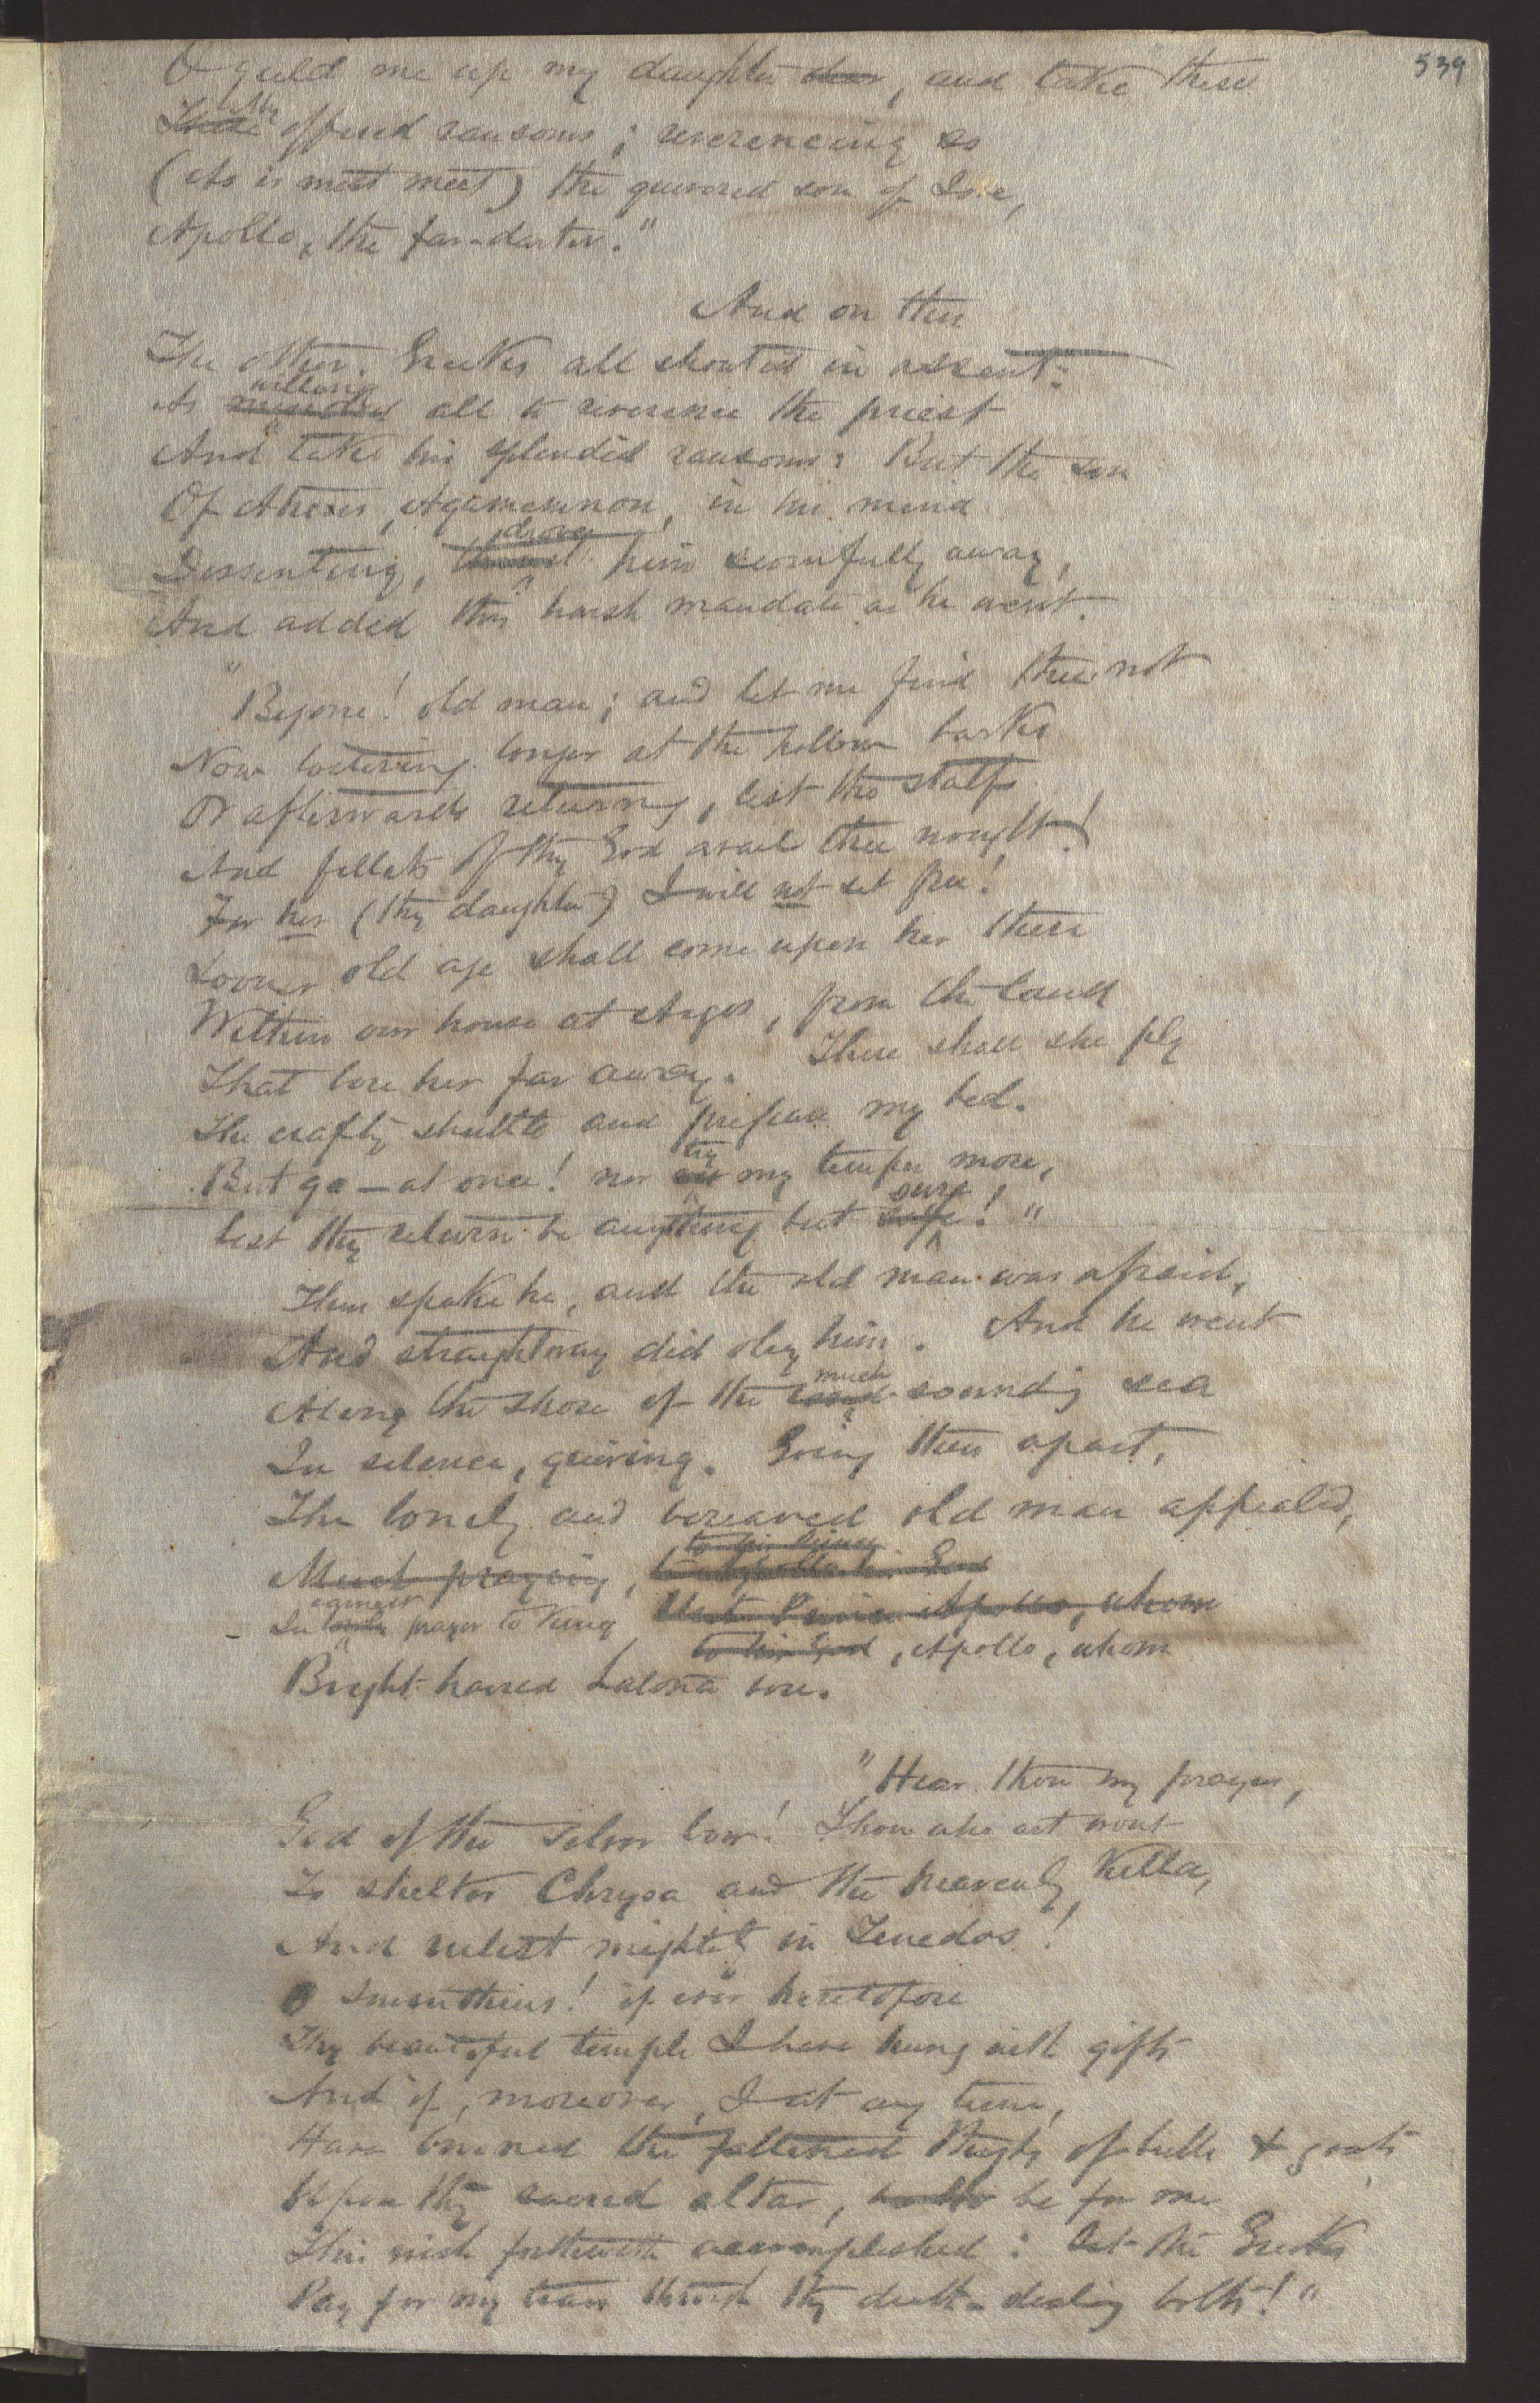 539
O yield me up my daughter dear, and take these
These my offered ransoms; reverencing so
(As is meet meet) the quivered son of Jove,
Apollo, the far-darter."
And on then
The other Greeks all shouted in assent:
As willing all to reverence the priest
And take his splendid ransoms: But the son
Of Atreus, Agamemnon, in his mind
Dissenting, drove him scornfully away,
And added this harsh mandate as he went.
"Begone! old man; and let me find thee not
Now loitering longer at the hollow barks
Or afterwards returning, lest the staff
And fillets of thy God avail thee nought!
For her (thy daughter) I will not set free!
Sooner old age shall come upon her there
Within our house at Argos, from the land
That bore her far away. There shall she ply
The crafty shuttle and prepare my bed.
But go — at once! nor try my temper more,
lest thy return be anything but safe sure!"
Thus spake he, and the old man was afraid,
And straightway did obey him. And he went
Along the shore of the loud much-sounding sea
In silence, grieving. Going then apart,
The lonely and bereaved old man appealed,
to his King
Much praying, to Apollo his God
In earnest prayer to King Apollo, whom
to his God, Apollo, whom
Bright-haired Latona bore.
"Hear thou my prayer,
God of the silver bow! Thou who art wont
To shelter Chrysa and the heavenly Killa,
And rulest mightily in Tenedos!
O Smintheus! if ever heretofore
Thy beautiful temple I have hung with gifts
And if, moreover, I at any time,
Have burned the fattened thighs of bulls & goats
Upon thy sacred altar, be for me
This wish forthwith accomplished: let the Greeks
Pay for my tears through thy death-dealing bolts!"